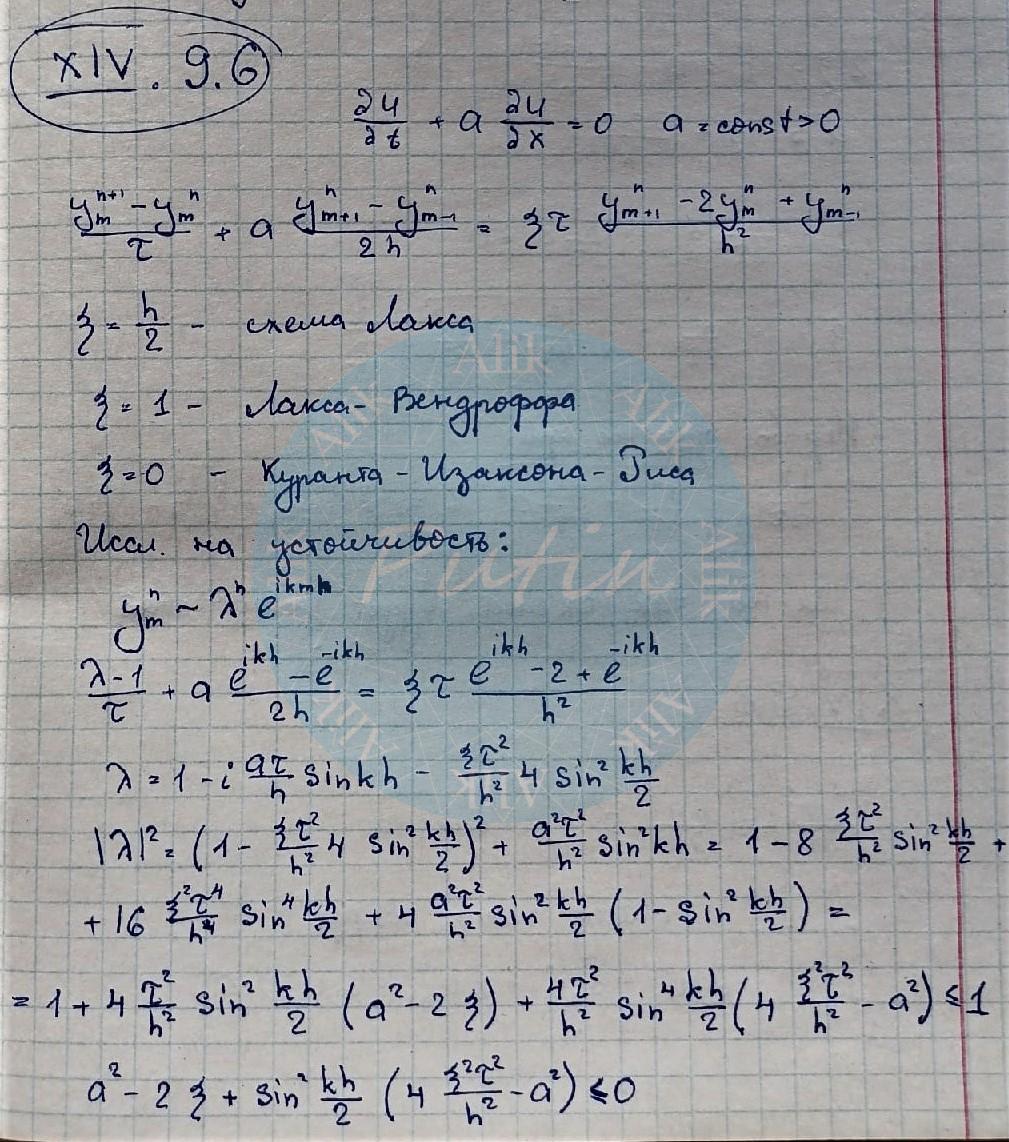 XIV. 9.6
∂u/∂t + a ∂u/∂x = 0 a = const > 0
(y_m^{n+1} - y_m^n)/τ + a (y_{m+1}^n - y_{m-1}^n)/(2h) = ξτ (y_{m+1}^n - 2y_m^n + y_{m-1}^n)/h^2
ξ = h/2 - схема Лакса
ξ = 1 - Лакса - Вендроффа
ξ = 0 - Куранта - Изаксона - Риса
Иссл. на устойчивость:
y_m^n ~ λ^n e^{ikmh}
(λ-1)/τ + a (e^{ikh} - e^{-ikh})/(2h) = ξτ (e^{ikh} - 2 + e^{-ikh})/h^2
λ = 1 - i (aτ/h) sin kh - (ξτ^2/h^2) 4 sin^2 (kh/2)
|λ|^2 = (1 - (ξτ^2/h^2) 4 sin^2 (kh/2))^2 + (a^2τ^2/h^2) sin^2 kh = 1 - 8 (ξτ^2/h^2) sin^2 (kh/2) +
+ 16 (ξ^2τ^4/h^4) sin^4 (kh/2) + 4 (a^2τ^2/h^2) sin^2 (kh/2) (1 - sin^2 (kh/2)) =
= 1 + 4 (τ^2/h^2) sin^2 (kh/2) (a^2 - 2ξ) + (4τ^2/h^2) sin^4 (kh/2) (4 (ξ^2τ^2/h^2) - a^2) ≤ 1
a^2 - 2ξ + sin^2 (kh/2) (4 (ξ^2τ^2/h^2) - a^2) ≤ 0
Alik
Alik
Alik
Alik
Alik
Alik
Alik
Putin